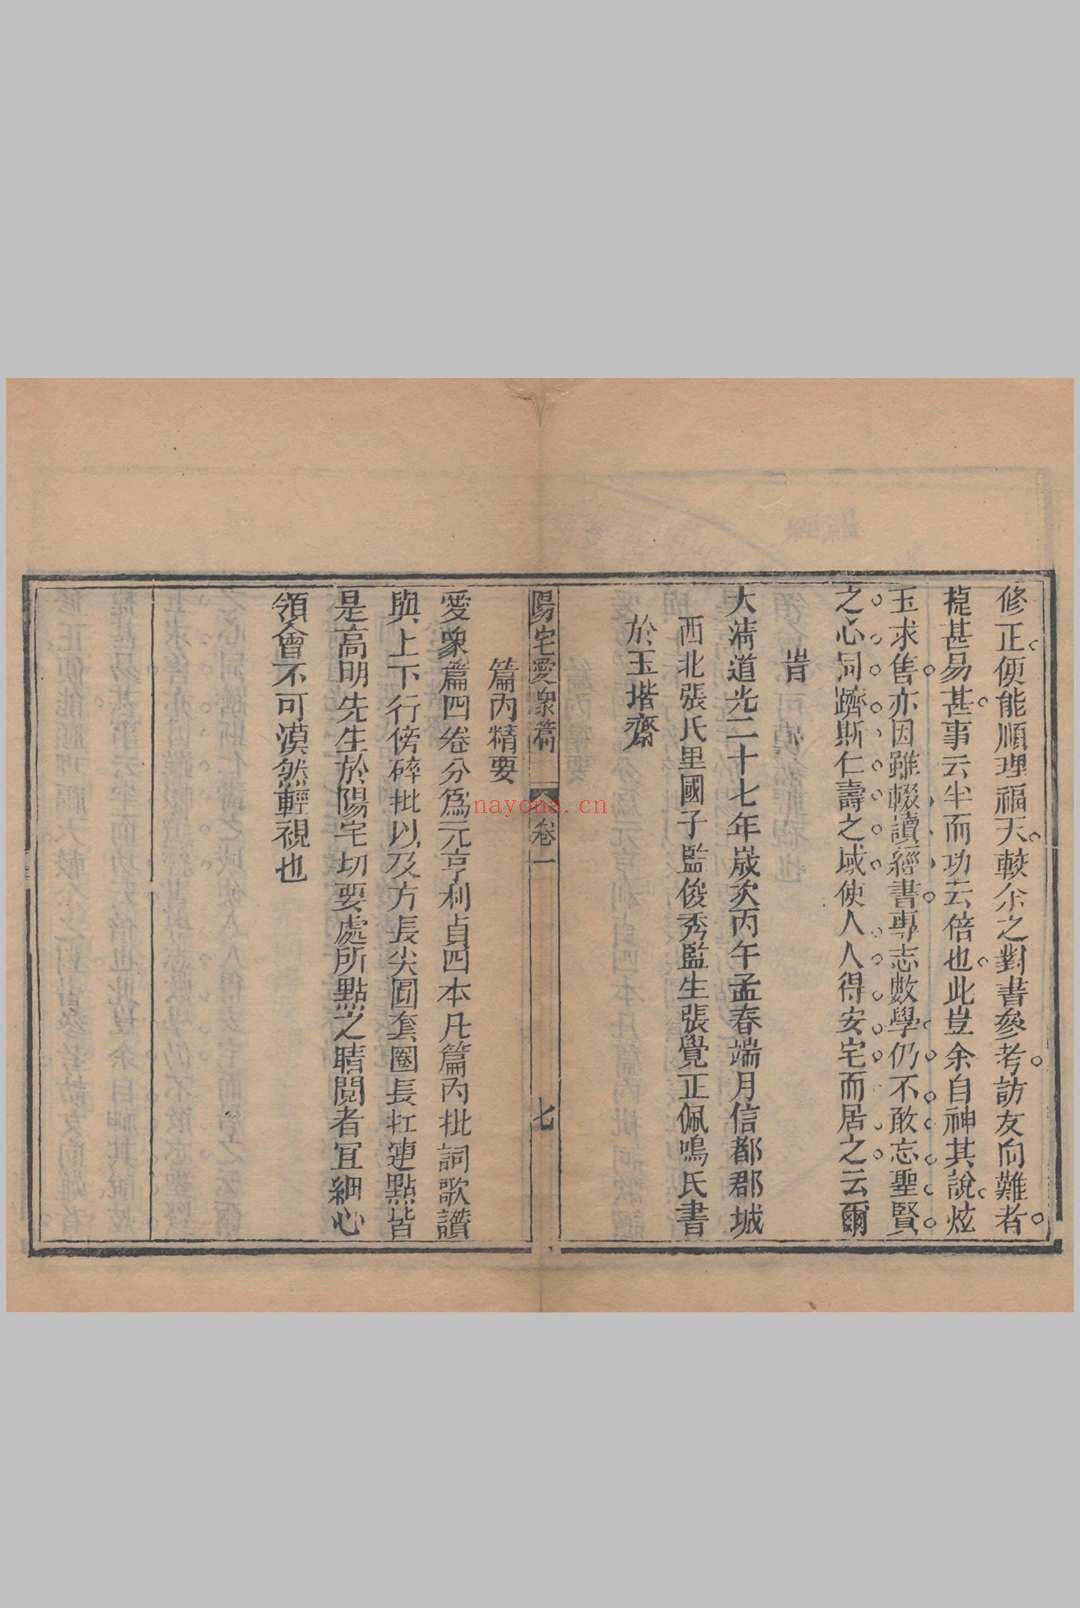 修正便能順理福天較余之對書參考訪友向難者
捷甚易甚事云半而功云倍也此豈余自神其說炫
玉求售亦因雖輟讀經書專志數學仍不敢忘聖賢
之心同躋斯仁壽之域使人人得安宅而居之云爾
旹
大清道光二十七年歲次丙午孟春端月信都郡城
西北張氏里國子監俊秀監生張覺正佩鳴氏書
於玉堦齋
陽宅愛衆篇 卷一 七
篇內精要
愛衆篇四卷分爲元亨利貞四本凡篇內批詞歌讚
與上下行傍碎批以及方長尖圓套圈長扛連點皆
是高明先生於陽宅切要處所點之睛閱者宜細心
領會不可漠然輕視也
nayona.cn